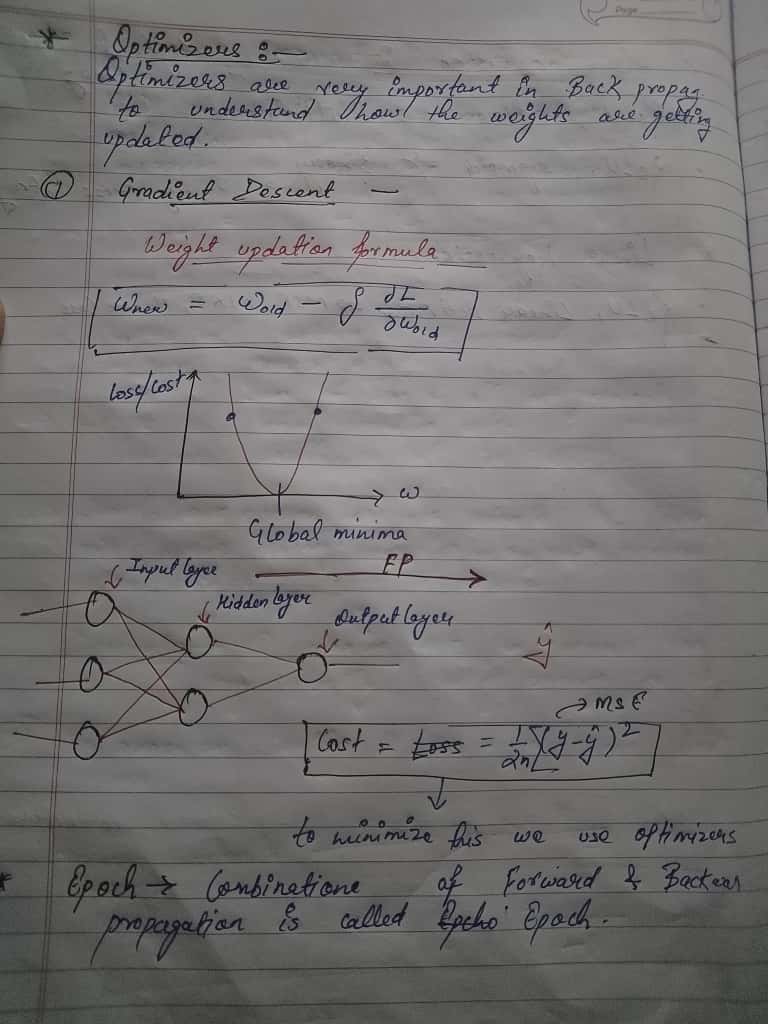 Page
* Optimizers :-
Optimizers are very important in Back propag
to understand how the weights are getting
updated.
① Gradient Descent -
Weight updation formula
Wnew = Wold - δ ∂L/∂Wold
Loss/Cost
w
Global minima
Input layer
FP
Hidden layer
Output layer
ŷ
→ MSE
Cost = Loss = 1/2n Σ(y-ŷ)²
to minimize this we use optimizers
* Epoch → Combinatione of Forward & Backwar
propagation is called Epcho Epoch.